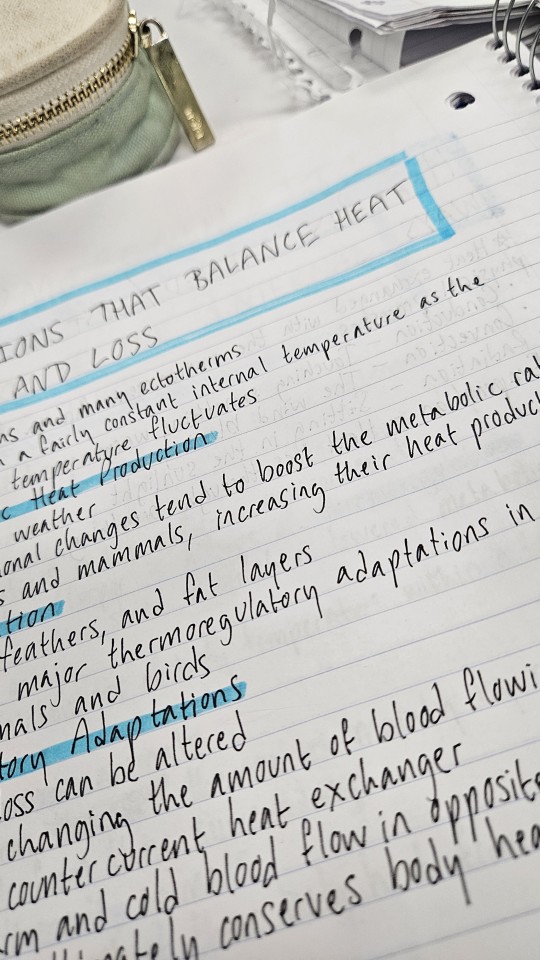 IONS THAT BALANCE HEAT
AND LOSS
ns and many ectotherms
n a fairly constant internal temperature as the
temperature fluctuates
c Heat Production
weather
onal changes tend to boost the metabolic ra
s and mammals, increasing their heat produc
tion
feathers, and fat layers
major thermoregulatory adaptations in
mals and birds
tory Adaptations
oss can be altered
changing the amount of blood flowi
countercurrent heat exchanger
rm and cold blood flow in opposite
timately conserves body hea